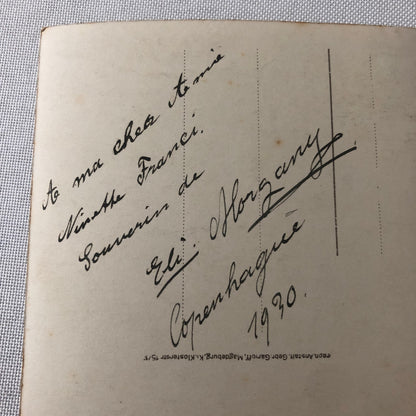 A ma chère Amie
Ninette Franci.
Souvenir de
Eli. Morgany
Copenhague
1930.
Gebr. Garloff, Magdeburg, K. Klosterstr 15/1